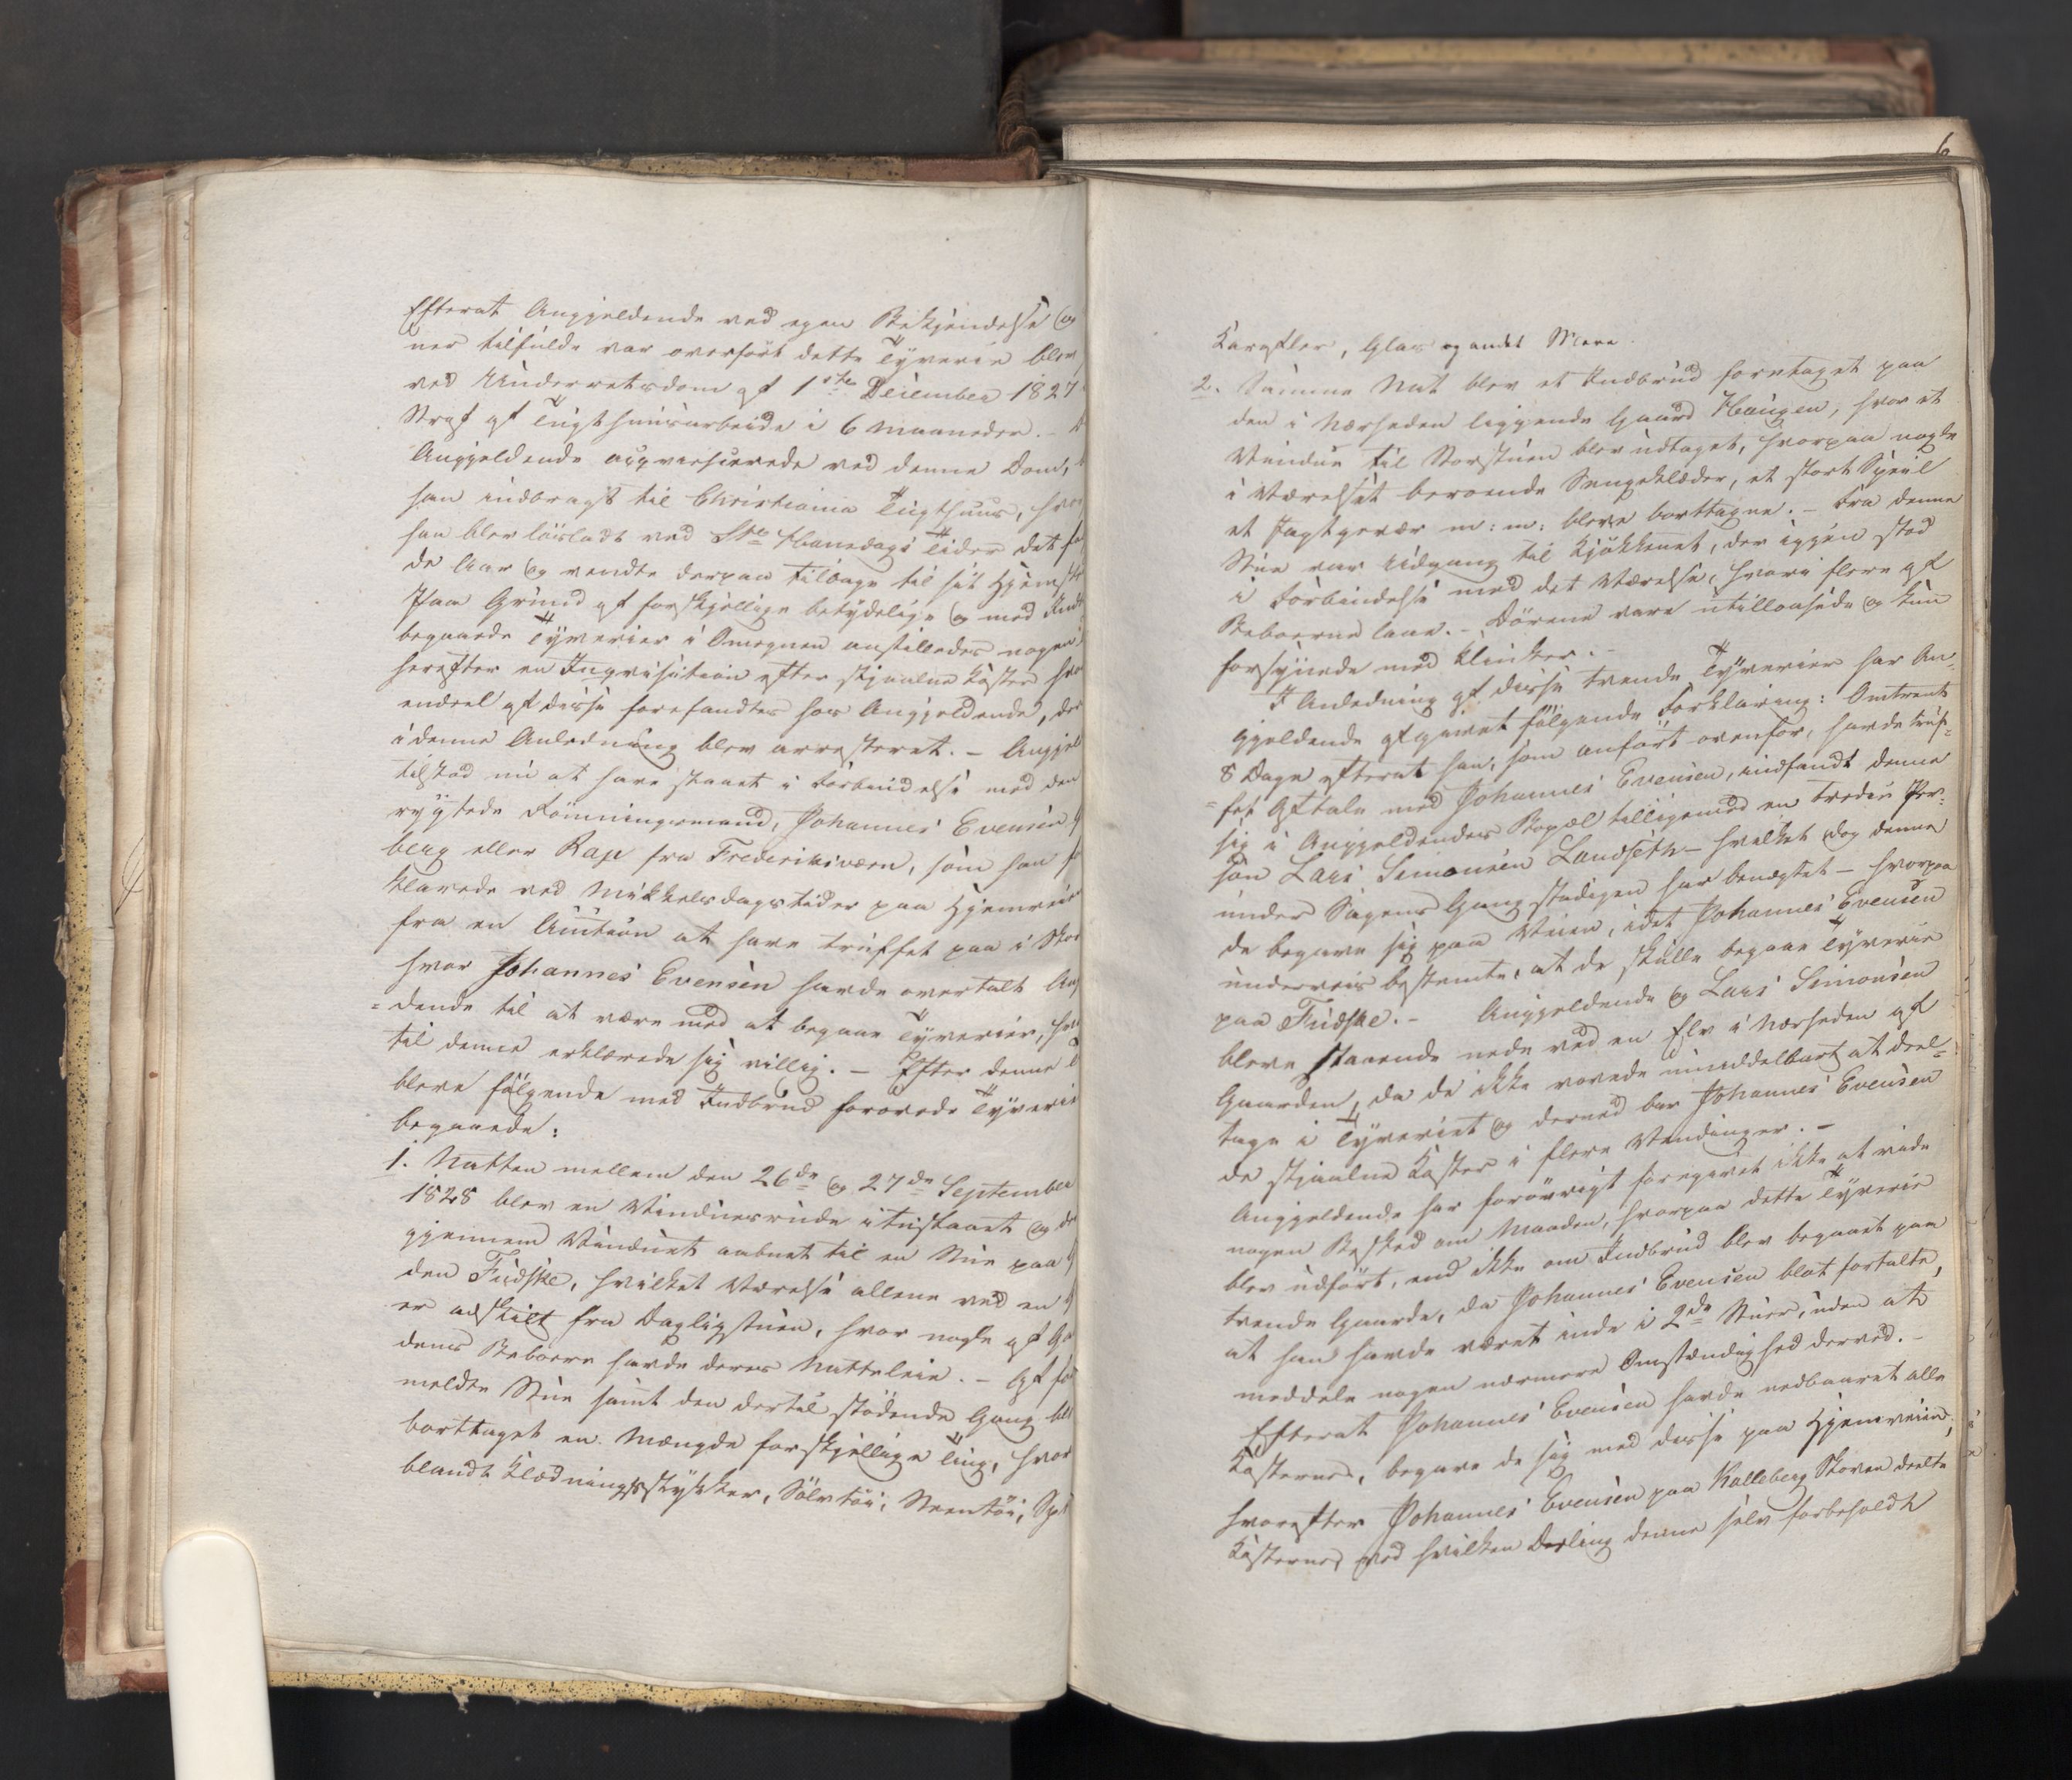 Efterat Angjeldende ved egen Bekjendelse og
ner tilfulde var overført dette Tyverie blev
ved Underretsdom af 1ste December 1827
Straf af Tugthuusarbeide i 6 Maaneder. –
Angjeldende acqviescerede ved denne Dom,
han indbragt til Christiania Tugthuus, hvor
han blev løsladt ved Ste Hansdags Tider det
de Aar og vendte derpaa tilbage til sit Hjemsted
Paa Grund af forskjellige betydelige og med Ind
begaaede Tyverier i Omegnen anstilledes nogen
herefter en Inqvisition efter stjaalne Koster
endeel af disse forefandtes hos Angjeldende, der
i denne Anledning blev arresteret. – Angjel
tilstod nu at have staaet i Forbindelse med den
rygtede Rømningsmand, Johannes Evensen
berg eller Rap fra Frederiksværn, som han
klarede ved Mikkelsdagstider paa Hjemveien
fra en Auction at have truffet paa i Skov
hvor Johannes Evensen havde overtalt Ang
= dende til at være med at begaae Tyverier,
til denne erklærede sig villig. – Efter denne
bleve følgende med Indbrud forøvede Tyverie
begaaede:
1. Natten mellem den 26de og 27de September
1828 blev en Vinduesrude itustaaet og
gjennem Vinduet aabnet til en Stue paa
den Fudske, hvilket Værelse allene ved en
er adskilt fra Dagligstuen, hvor nogle af
dens Beboere havde deres Natteleie. – Af
meldte Stue samt den dertil stødende Gang
borttaget en Mængde forskjellige Ting, hvor
blandt Klædningsstykker, Sølvtøi, Steentøi,
6
Karafler, Glas og andet Mere.
2. Samme Nat blev et Indbrud foretaget paa
den i Nærheden liggende Gaard Haugen, hvor et
Vindue til Storstuen blev udtaget, hvorpaa nogle
i Værelset beroende Sengeklæder, et stort Speil
et Jagtgevær m: m: bleve borttagne. – Fra denne
Stue var Udgang til Kjøkkenet, der igjen stod
i Forbindelse med det Værelse, hvori flere af
Beboerne laae. – Dørene vare utillaasede og kun
forsynede med Klinker. –
I Anledning af disse tvende Tyverier har An-
gjeldende afgivet følgende Forklaring: Omtrent
8 Dage efterat han, som anført ovenfor, havde truf-
= fet Aftale med Johannes Evensen, indfandt denne
sig i Angjeldendes Bopæl tilligemed en tredie Per-
son Lars Simonsen Landseth – hvilket dog denne
under Sagens Gang stadigen har benægtet – hvorpaa
de begave sig paa Veien, idet Johannes Evensen
underveis bestemte, at de skulle begaae Tyverie
paa Fudske. – Angjeldende og Lars Simonsen
bleve staaende nede ved en Elv i Nærheden af
Gaarden, da de ikke vovede umiddelbart at deel-
tage i Tyveriet og derned bar Johannes Evensen
de stjaalne Koster i flere Vendinger. –
Angjeldende har forøvrigt foregivet ikke at vide
nogen Besked om Maaden, hvorpaa dette Tyverie
blev udført, end ikke om Indbrud blev begaaet paa
tvende Gaarde, da Johannes Evensen blot fortalte,
at han havde været inde i 2de Stuer, uden at
meddele nogen nærmere Omstændighed derved. –
Efterat Johannes Evensen havde nedbaaret alle
Kosterne, begave de sig med disse paa Hjemveien,
hvorefter Johannes Evensen paa Kalleberg Skoven deelte
Kosterne, ved hvilken Deeling denne selv forbeholdt